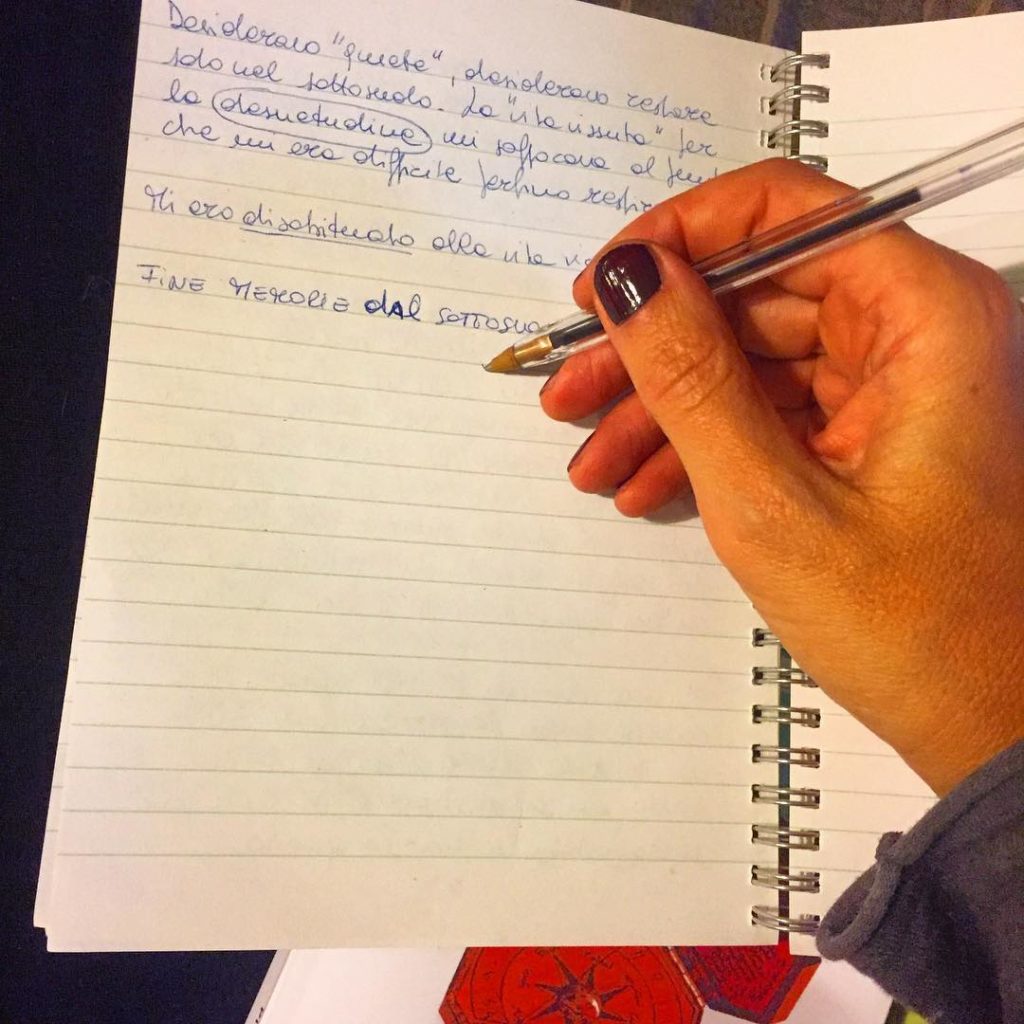 Desideravo "quiete", desideravo restare
solo nel sottosuolo. La "vita vissuta" per
la desuetudine mi soffocava al
che mi era difficile perfino
Mi ero disabituato alla vita
FINE MEMORIE DAL